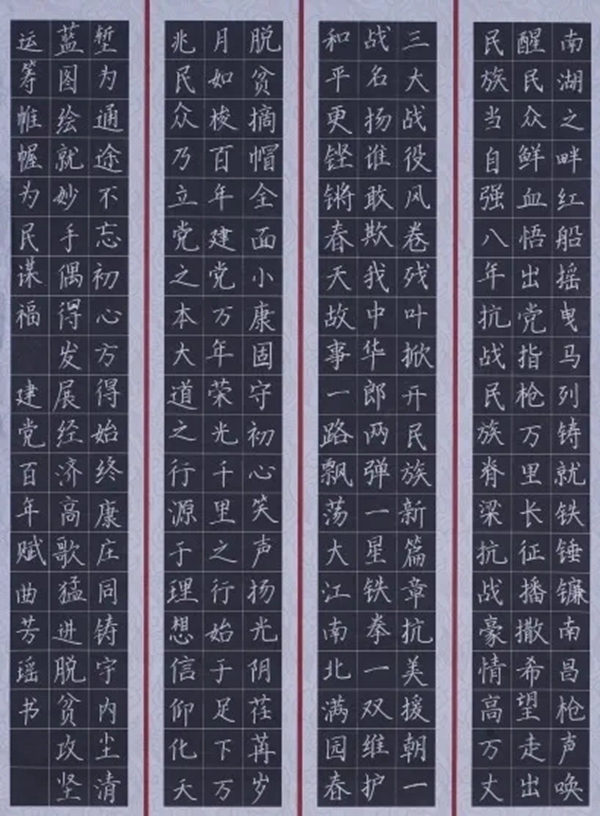 南湖之畔红船摇曳马列铸就铁锤镰南昌枪声唤
醒民众鲜血悟出党指枪万里长征播撒希望走出
民族当自强八年抗战民族脊梁抗战豪情高万丈
三大战役风卷残叶掀开民族新篇章抗美援朝一
战名扬谁敢欺我中华郎两弹一星铁拳一双维护
和平更铿锵春天故事一路飘荡大江南北满园春
脱贫摘帽全面小康固守初心笑声扬光阴荏苒岁
月如梭百年建党万年荣光千里之行始于足下万
兆民众乃立党之本大道之行源于理想信仰化天
堑为通途不忘初心方得始终康庄同铸宇内尘清
蓝图绘就妙手偶得发展经济高歌猛进脱贫攻坚
运筹帷幄为民谋福 建党百年赋曲芳瑶书